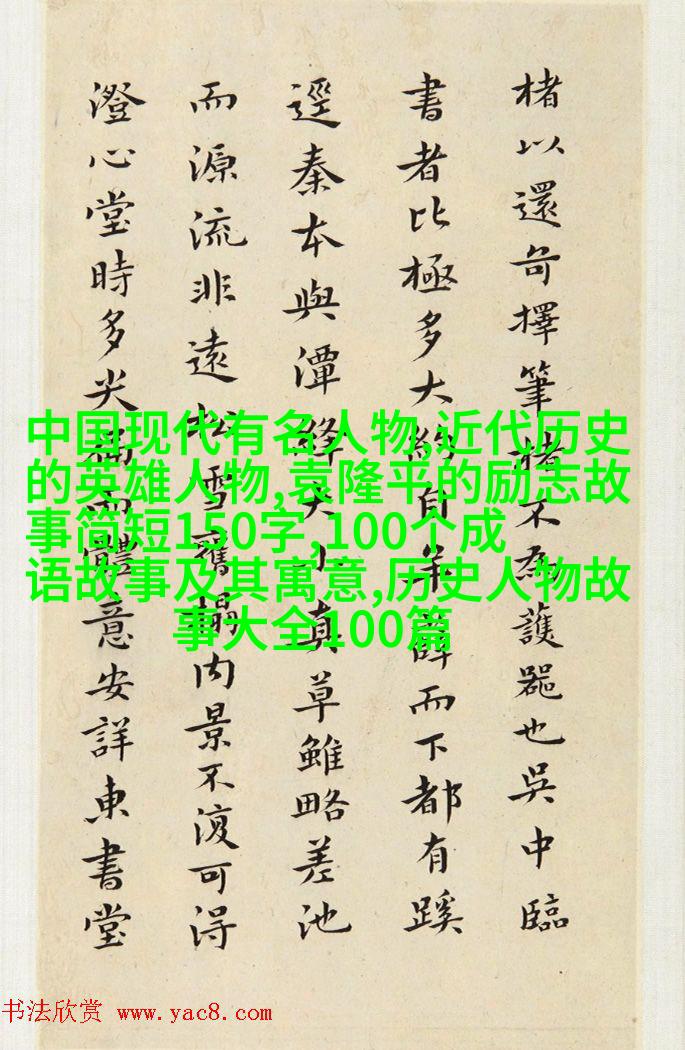 楮以還奇擇筆楮不為護
也吳中臨
書者比極多大
自年
而下都有蹊
逕秦本與潭絳
真草雖略差池
而源流非遠松雪舊搨內景不復可得
澄心堂時多
意安詳東書堂
中国现代有名人物,近代历史
的英雄人物,袁隆平的励志故
事简短150字,100个成
语故事及其寓意,历史人物故
事大全100篇
书法欣赏 www.yac8.com